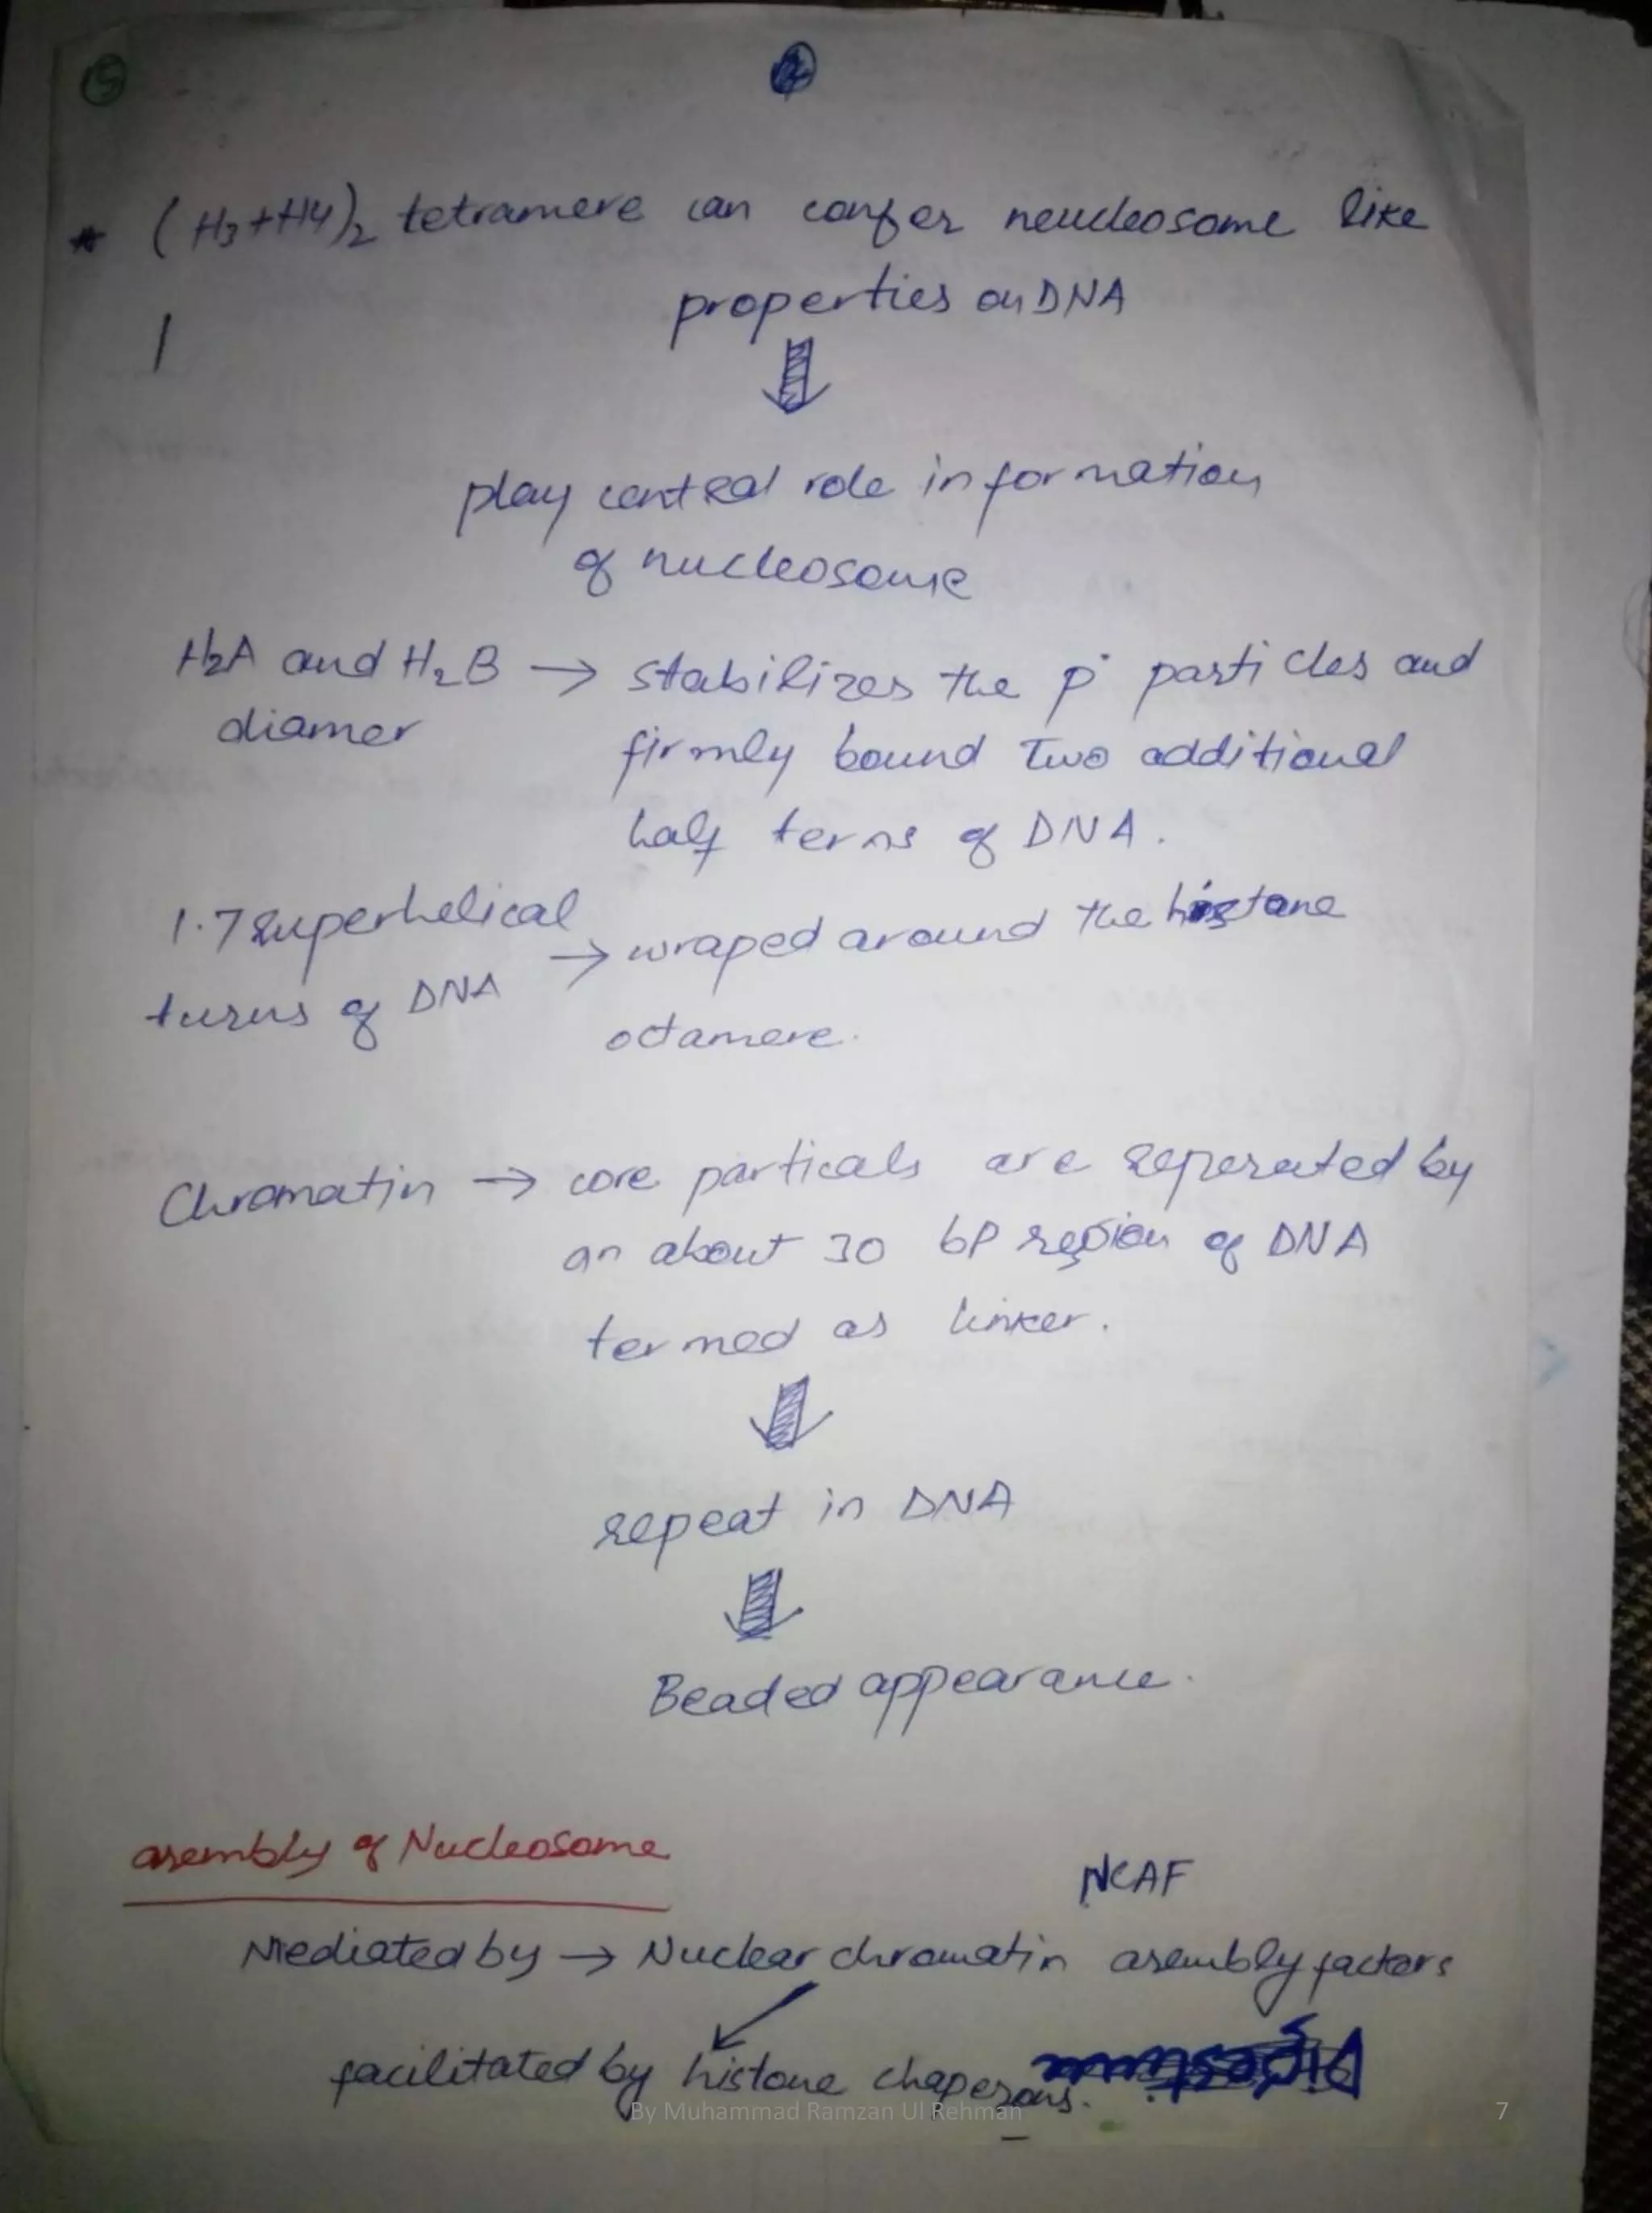 15
* (H3+H4)2 tetramere can confer neucleosome like
properties on DNA
play central role in formation
of nucleosome
H2A and H2B → stabilizes the p° particles and
diamer
firmly bound Two additional
half terns of DNA.
1.7 superhelical
turns of DNA → wraped around the histone
octamere.
Chromatin → core particals are seperated by
an about 30 bp region of DNA
termed as linker.
repeat in DNA
Beaded appearance.
asembly of Nucleosome
NCAF
Mediated by → Nuclear chromatin asembly factors
facilitated by histone chaperons.
By Muhammad Ramzan Ul Rehman
7